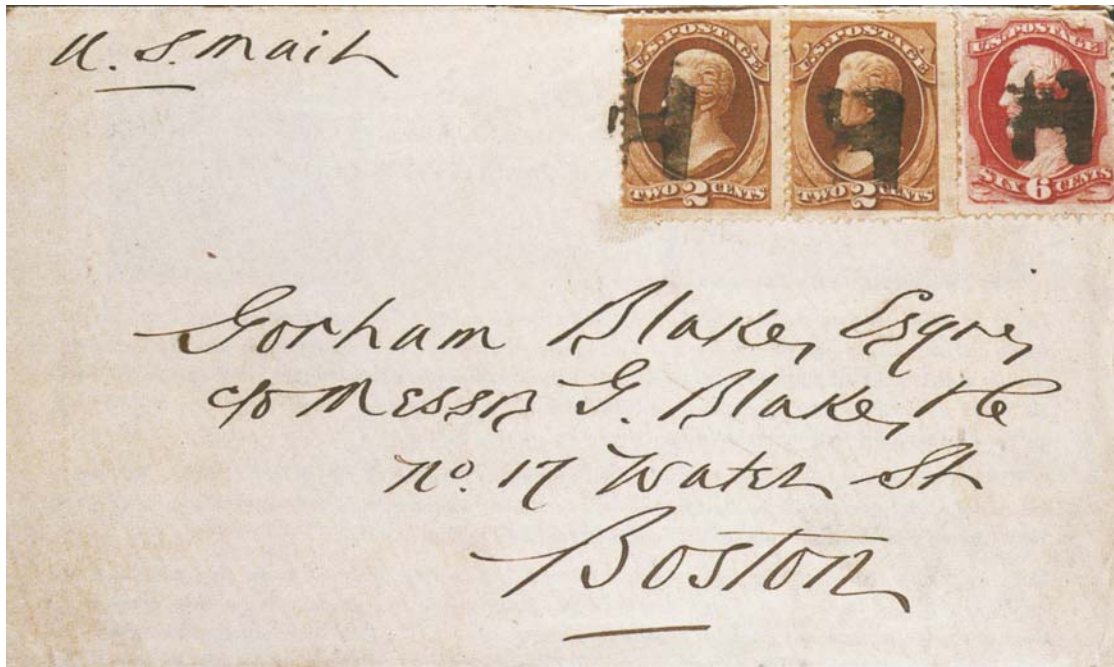 U. S. Mail
U.S. POSTAGE
TWO 2 CENTS
U.S. POSTAGE
TWO 2 CENTS
U.S. POSTAGE
SIX 6 CENTS
Gorham Blake, Esqre,
c/o Messrs G. Blake,
No. 17 Water St
Boston